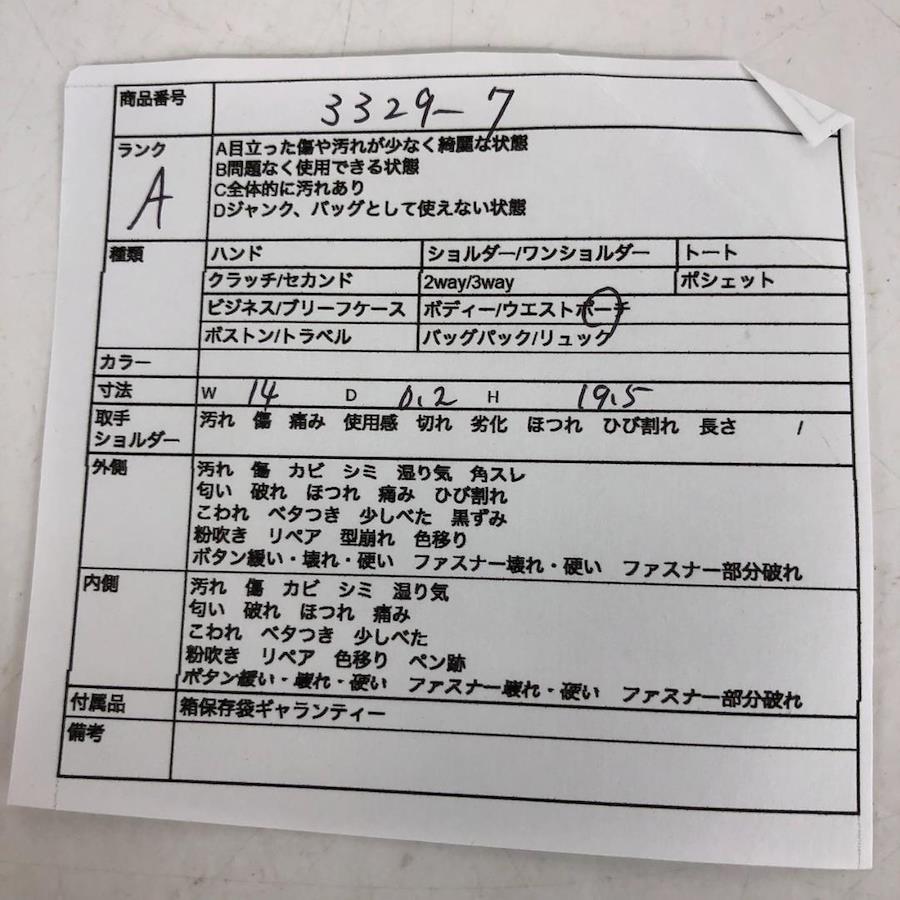 商品番号 3329-7
ランク A
A目立った傷や汚れが少なく綺麗な状態
B問題なく使用できる状態
C全体的に汚れあり
Dジャンク、バッグとして使えない状態
種類 ハンド ショルダー/ワンショルダー トート
クラッチ/セカンド 2way/3way ポシェット
ビジネス/ブリーフケース ボディー/ウエストポーチ
ボストン/トラベル バッグパック/リュック
カラー
寸法 W 14 D 0.2 H 19.5
取手 汚れ 傷 痛み 使用感 切れ 劣化 ほつれ ひび割れ 長さ /
ショルダー
外側 汚れ 傷 カビ シミ 湿り気 角スレ
匂い 破れ ほつれ 痛み ひび割れ
こわれ ベタつき 少しべた 黒ずみ
粉吹き リペア 型崩れ 色移り
ボタン緩い・壊れ・硬い ファスナー壊れ・硬い ファスナー部分破れ
内側 汚れ 傷 カビ シミ 湿り気
匂い 破れ ほつれ 痛み
こわれ ベタつき 少しべた
粉吹き リペア 色移り ペン跡
ボタン緩い・壊れ・硬い ファスナー壊れ・硬い ファスナー部分破れ
付属品 箱保存袋ギャランティー
備考